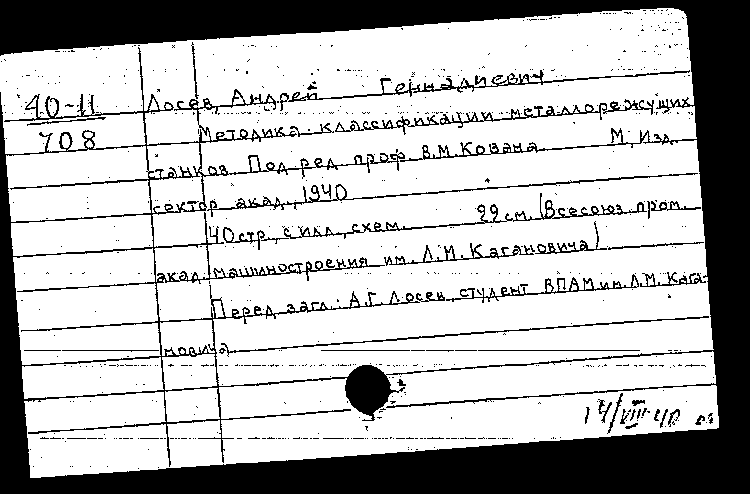 40-11
708
Лосев, Андрей Геннадиевич
Методика классификации металлорежущих
станков. Под ред. проф. В.М. Кована. М. Изд.
сектор акад., 1940
40 стр., с илл., схем. 22 см. (Всесоюз. пром.
акад. машиностроения им. Л.М. Кагановича)
Перед загл.: А.Г. Лосев, студент ВПАМ им. Л.М. Кага-
новича.
14/VIII-40